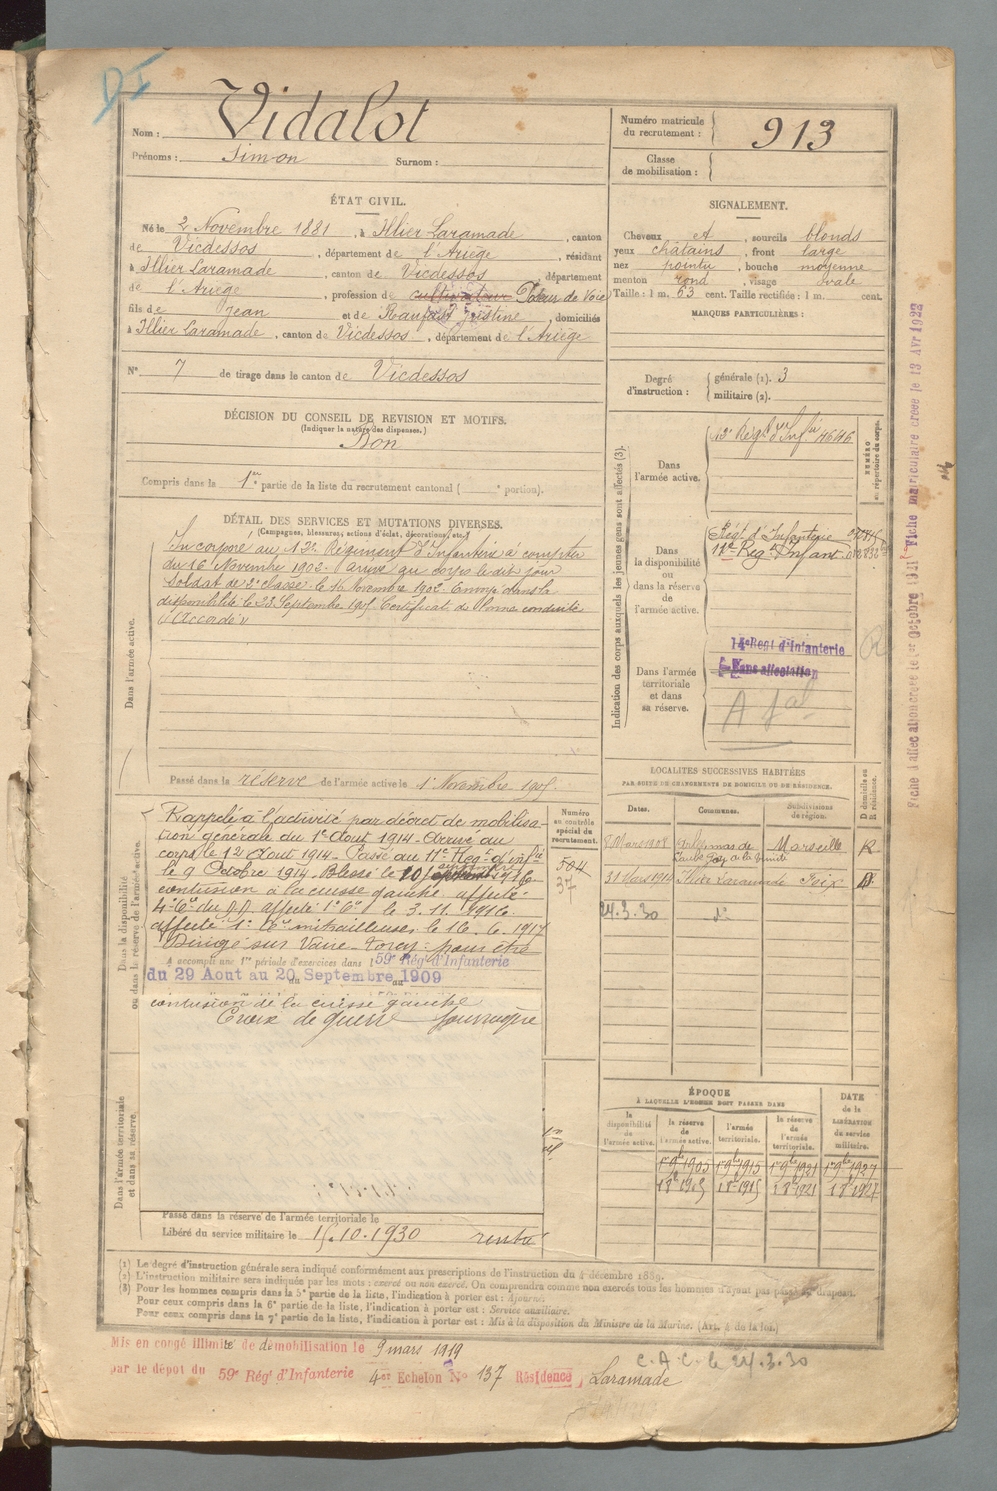 D I
Nom : Vidalot
Prénoms : Simon Surnom :
Numéro matricule
du recrutement : 913
Classe
de mobilisation :
ÉTAT CIVIL.
Né le 2 Novembre 1881, à Illier Laramade, canton
de Vicdessos, département de l'Ariège, résidant
à Illier Laramade, canton de Vicdessos, département
de l'Ariège, profession de cultivateur Poseur de Voie
fils de Jean et de Justine, domiciliés
à Illier Laramade, canton de Vicdessos, département de l'Ariège
N° 7 de tirage dans le canton de Vicdessos
SIGNALEMENT.
Cheveux et, sourcils blonds
yeux châtains, front large
nez pointu, bouche moyenne
menton rond, visage ovale
Taille : 1 m. 63 cent. Taille rectifiée : 1 m. cent.
MARQUES PARTICULIÈRES :
Degré
d'instruction :
générale (1). 3
militaire (2).
DÉCISION DU CONSEIL DE REVISION ET MOTIFS.
(Indiquer la nature des dispenses.)
Bon
Compris dans la 1re partie de la liste du recrutement cantonal ( e portion).
DÉTAIL DES SERVICES ET MUTATIONS DIVERSES.
(Campagnes, blessures, actions d'éclat, décorations, etc.)
Dans l'armée active.
Incorporé au 12e Régiment d'Infanterie à compter
du 16 Novembre 1902. Arrivé au corps le dit jour
Soldat de 2e classe le 16 Novembre 1902. Envoyé dans la
disponibilité le 23 Septembre 1905 Certificat de bonne conduite
"Accordé"
Passé dans la réserve de l'armée active le 1er Novembre 1905
Indication des corps auxquels les jeunes gens sont affectés (3).
NUMÉRO
au répertoire du corps.
Dans
l'armée active.
12e Régt d'Infie
Dans
la disponibilité
ou
dans la réserve
de
l'armée active.
Régt d'Infanterie
11e Rég. Infant.
Dans l'armée
territoriale
et dans
sa réserve.
14e Régt d'Infanterie
Sans affectation
R
Fiche d'affectation créée le 1er Octobre 1921 Fiche matriculaire créée le 13 Avr 1922
Dans la disponibilité
ou dans la réserve de l'armée active.
Rappelé à l'activité par décret de mobilisa-
tion générale du 1er Août 1914. Arrivé au
corps le 12 Août 1914. Passé au 11e Régt d'Infie
le 9 Octobre 1914. Blessé le 10 1916
contusion à la cuisse gauche. affecté
affecté 1e Cie le 3.11.1916.
affecté 1e Cie mitrailleuses le 16.6.1917
Dirigé sur Vaire-Torcy pour être
a accompli une 1re période d'exercices dans l 59e Rég. d'Infanterie
du 29 Aout au 20 Septembre 1909
contusion de la cuisse gauche
Croix de guerre
Numéro
au contrôle
spécial du
recrutement.
504
37
LOCALITÉS SUCCESSIVES HABITÉES
PAR SUITE DE CHANGEMENTS DE DOMICILE OU DE RÉSIDENCE.
Dates. Communes. Subdivisions
de région. D domicile ou
R résidence.
8 Mars 1908 Marseille R
31 Mars 1914 Illier Laramade Foix D
24.3.30 do
ÉPOQUE
À LAQUELLE L'HOMME DOIT PASSER DANS
DATE
de la
LIBÉRATION
du service
militaire.
la
disponibilité
de
l'armée active.
la réserve
de
l'armée active.
l'armée
territoriale.
la réserve
de
l'armée
territoriale.
1er 9bre 1905 1er 9bre 1915 1er 9bre 1921 1er 9bre 1927
1 8e 1905 1 8e 1915 1 8e 1921 1 8e 1927
Dans l'armée territoriale
et dans sa réserve.
Passé dans la réserve de l'armée territoriale le
Libéré du service militaire le 15.10.1930
(1) Le degré d'instruction générale sera indiqué conformément aux prescriptions de l'instruction du 4 décembre 1889.
(2) L'instruction militaire sera indiquée par les mots : exercé ou non exercé. On comprendra comme non exercés tous les hommes n'ayant pas passé sous les drapeaux.
(3) Pour les hommes compris dans la 5e partie de la liste, l'indication à porter est : Ajourné.
Pour ceux compris dans la 6e partie de la liste, l'indication à porter est : Service auxiliaire.
Pour ceux compris dans la 7e partie de la liste, l'indication à porter est : Mis à la disposition du Ministre de la Marine. (Art. 4 de la loi.)
Mis en congé illimité de démobilisation le 9 mars 1919
par le dépôt du 59e Rég. d'Infanterie 4e Echelon N° 137 Résidence Laramade
C.A.C. le 24.3.30